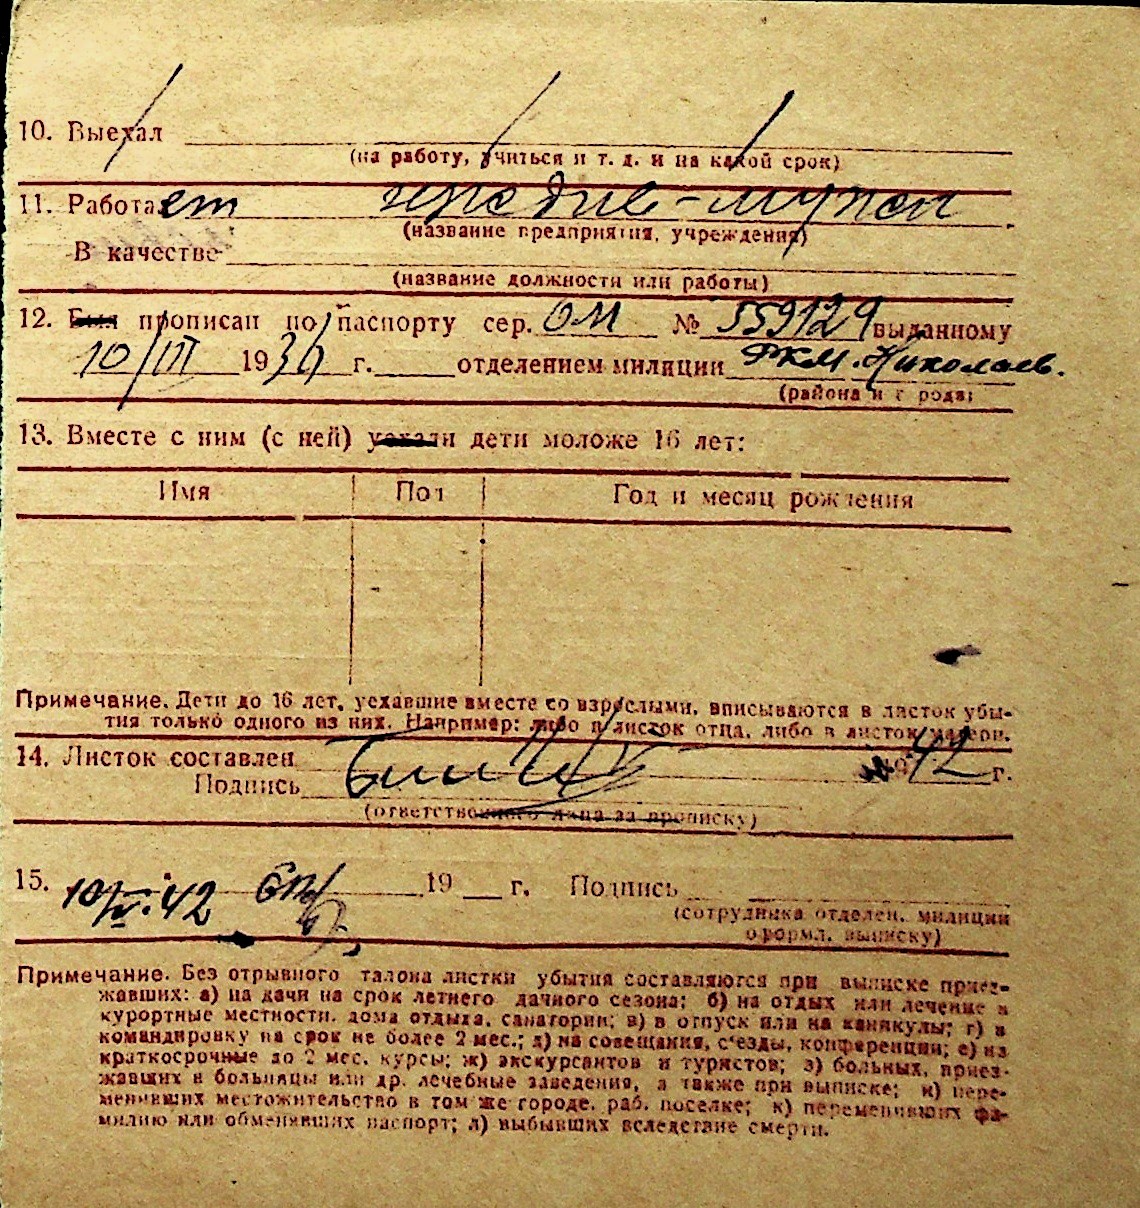 10. Выехал
(на работу, учиться и т. д. и на какой срок)
11. Работает иждив-мужен
(название предприятия, учреждения)
В качестве
(название должности или работы)
12. Был прописан по паспорту сер. ОМ № 559129 выданному
10/III 1936 г. отделением милиции РКМ. Николаев.
(района и города)
13. Вместе с ним (с ней) уехали дети моложе 16 лет:
Имя Пол Год и месяц рождения
Примечание. Дети до 16 лет, уехавшие вместе со взрослыми, вписываются в листок убы-
тия только одного из них. Например: либо в листок отца, либо в листок матери.
14. Листок составлен 42 г.
Подпись
(ответственного лица за прописку)
15. 10/IV.42 19 г. Подпись
(сотрудника отделен. милиции
оформл. выписку)
Примечание. Без отрывного талона листки убытия составляются при выписке приез-
жавших: а) на дачи на срок летнего дачного сезона; б) на отдых или лечение в
курортные местности, дома отдыха, санатории; в) в отпуск или на каникулы; г) в
командировку на срок не более 2 мес.; д) на совещания, с'езды, конференции; е) на
краткосрочные до 2 мес. курсы; ж) экскурсантов и туристов; з) больных, приез-
жавших в больницы или др. лечебные заведения, а также при выписке; и) пере-
менивших местожительство в том же городе, раб. поселке; к) переменивших фа-
милию или обменявших паспорт; л) выбывших вследствие смерти.